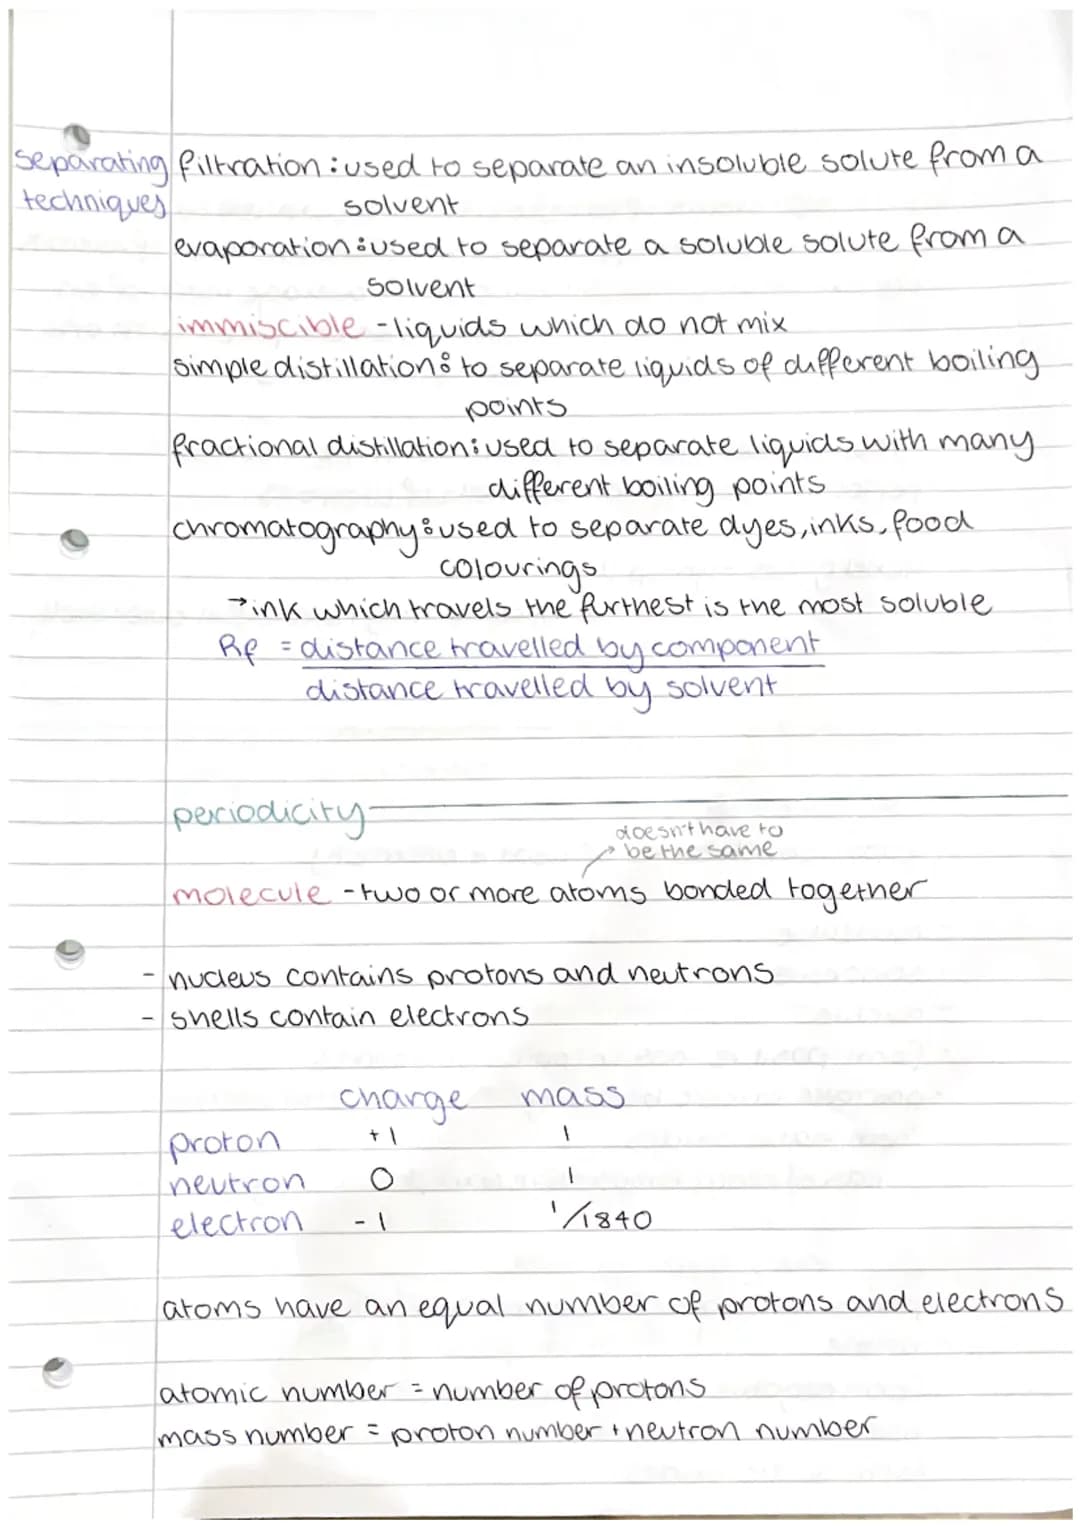 separating filtration: used to separate an insoluble solute from a
techniques solvent
evaporation: used to separate a soluble solute from a
solvent
immiscible - liquids which do not mix
simple distillation: to separate liquids of different boiling
points
fractional distillation: used to separate liquids with many
different boiling points
chromatography: used to separate dyes, inks, food
colourings
→ ink which travels the furthest is the most soluble
Rf = distance travelled by component
distance travelled by solvent
periodicity
doesn't have to
be the same
molecule - two or more atoms bonded together
- nucleus contains protons and neutrons
- shells contain electrons
charge mass
proton +1 1
neutron 0 1
electron -1 1/1840
atoms have an equal number of protons and electrons
atomic number = number of protons
mass number = proton number + neutron number